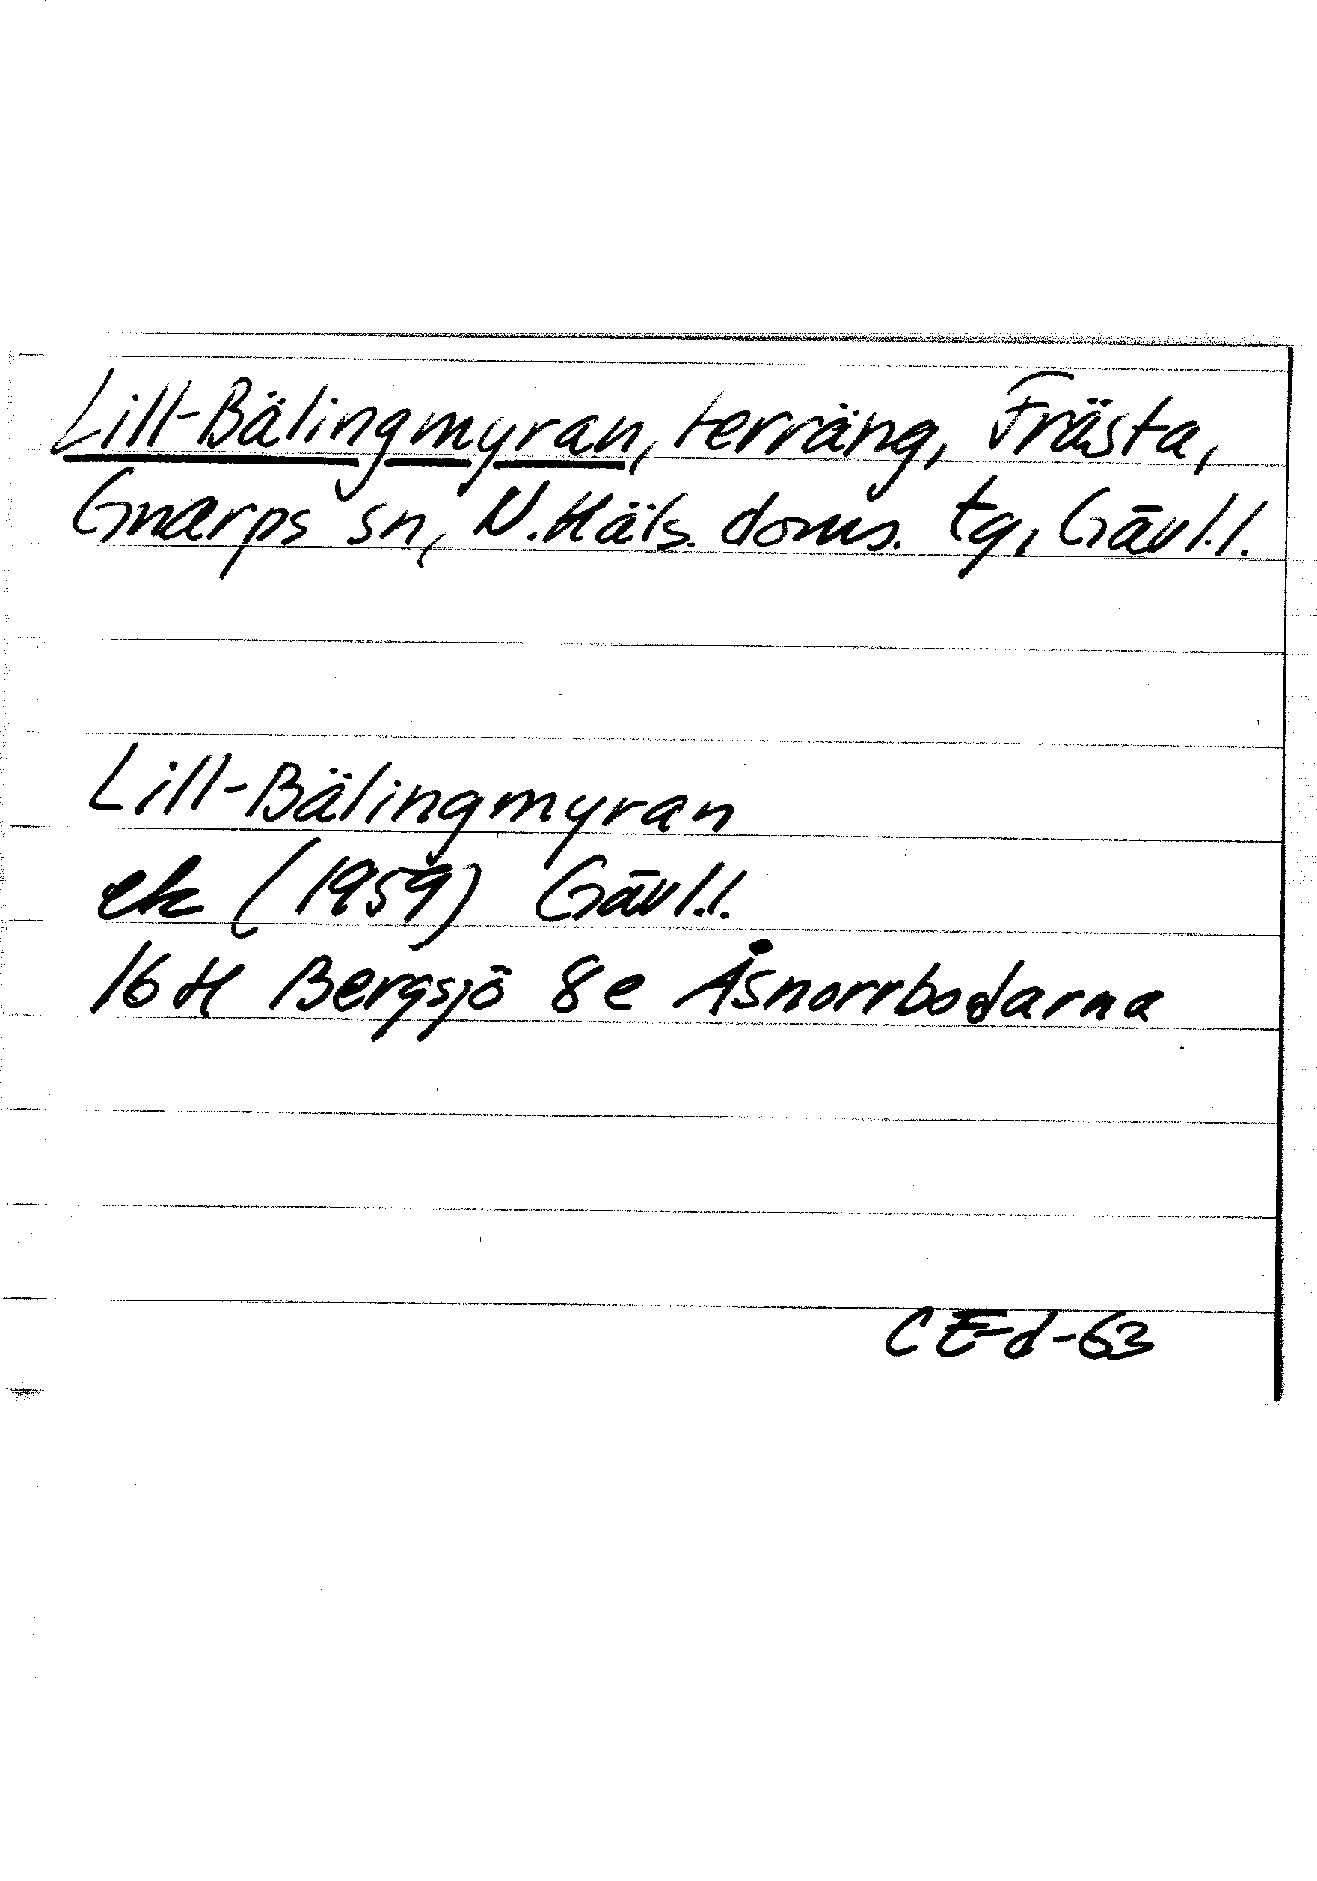 Lill-Bälingmyran, terräng, Frästa,
Gnarps sn, N.Häls. doms. tg, Gävl.l.
Lill-Bälingmyran
ek (1959) Gävl.l.
16 H Bergsjö 8e Åsnorrbodarna
CE-d-63